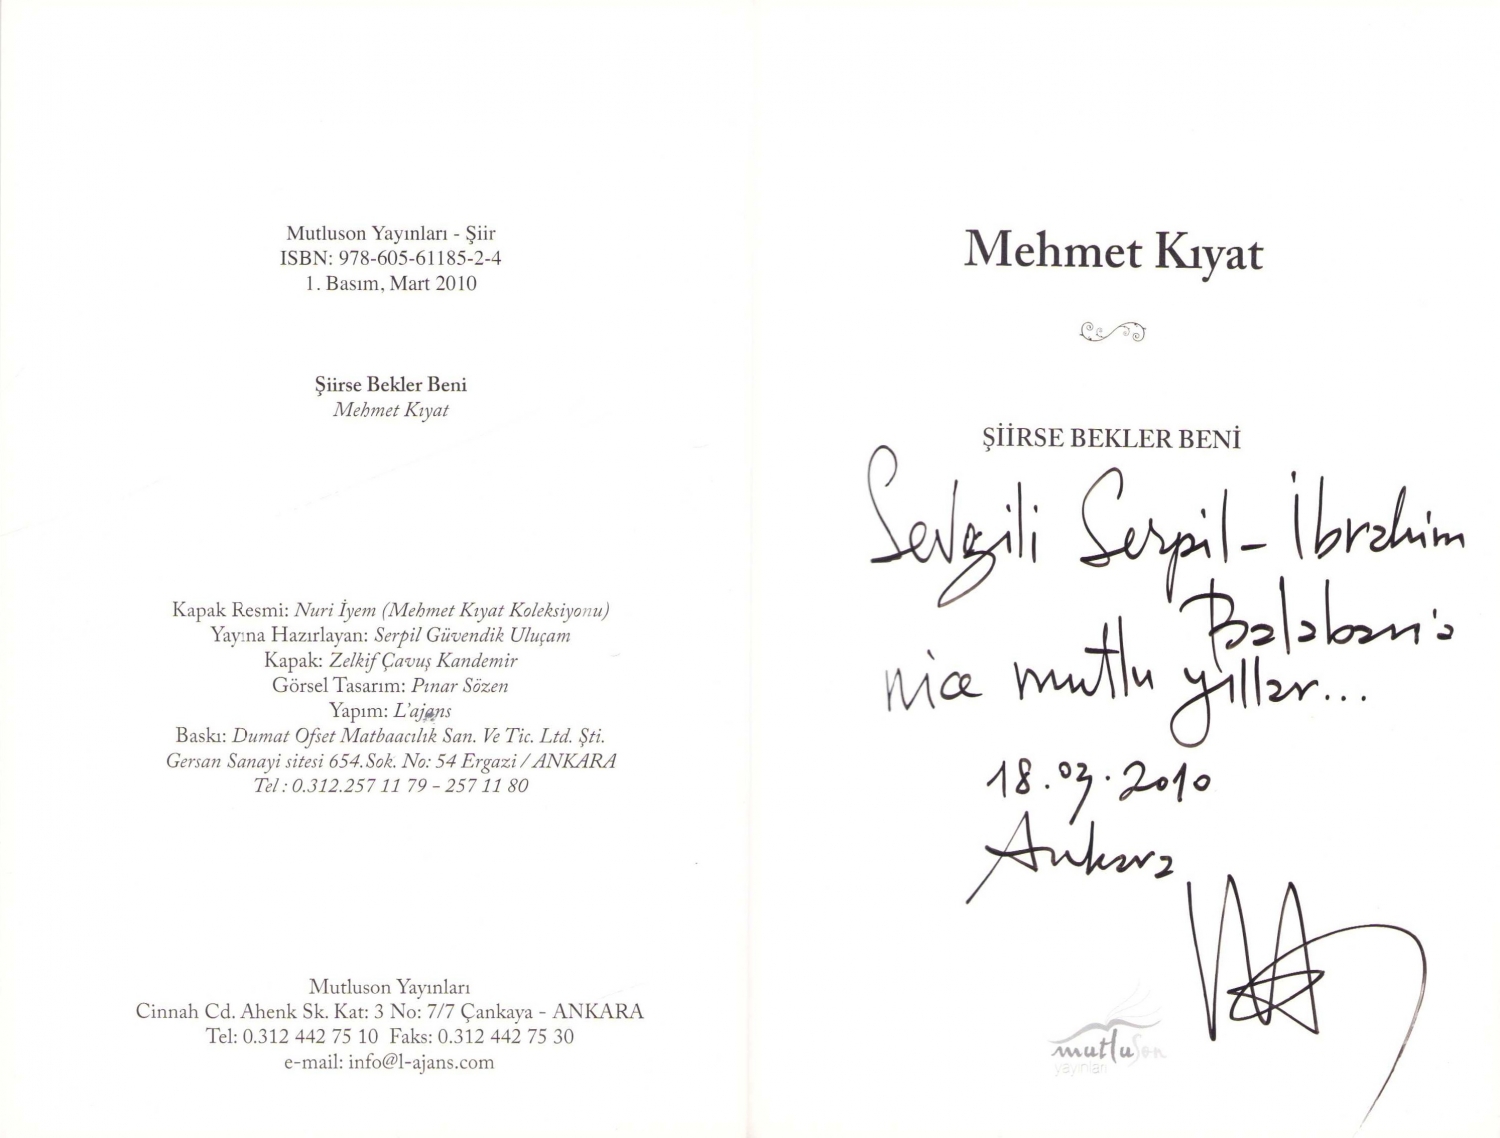 Mutluson Yayınları - Şiir
ISBN: 978-605-61185-2-4
1. Basım, Mart 2010
Şiirse Bekler Beni
Mehmet Kıyat
Kapak Resmi: Nuri İyem (Mehmet Kıyat Koleksiyonu)
Yayına Hazırlayan: Serpil Güvendik Uluçam
Kapak: Zelkif Çavuş Kandemir
Görsel Tasarım: Pınar Sözen
Yapım: L'ajans
Baskı: Dumat Ofset Matbaacılık San. Ve Tic. Ltd. Şti.
Gersan Sanayi sitesi 654.Sok. No: 54 Ergazi / ANKARA
Tel : 0.312.257 11 79 – 257 11 80
Mutluson Yayınları
Cinnah Cd. Ahenk Sk. Kat: 3 No: 7/7 Çankaya - ANKARA
Tel: 0.312 442 75 10 Faks: 0.312 442 75 30
e-mail: info@l-ajans.com
Mehmet Kıyat
ŞİİRSE BEKLER BENİ
Sevgili Serpil - İbrahim
Balaban'a
nice mutlu yıllar...
18.03.2010
Ankara
mutluson
yayınları